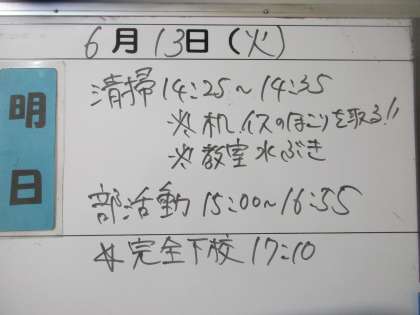 6月13日(火)
明日
清掃14:25~14:35
※机、イスのほこりを取る!!
※教室水ぶき
部活動 15:00~16:55
※完全下校 17:10